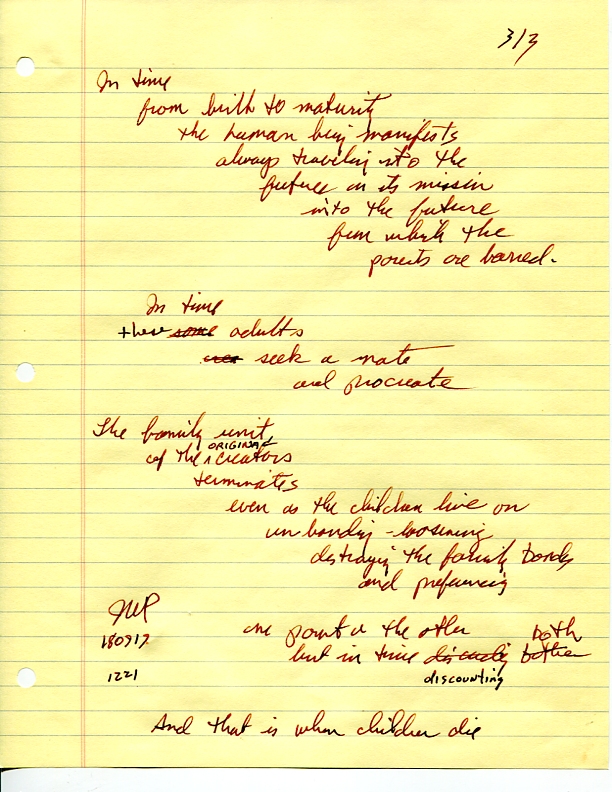 3/3
In time
from birth to maturity
the human being manifests
always traveling into the
future on its mission
into the future
from which the
parents are barred.
In time
these some adults
seek a mate
and procreate
The family unit
of the ORIGINAL creators
terminates
even as the children live on
unbonding - loosening
destroying the family bonds
and preferencing
one parent or the other
but in time discounting both
JWP
180917
1221
And that is when children die